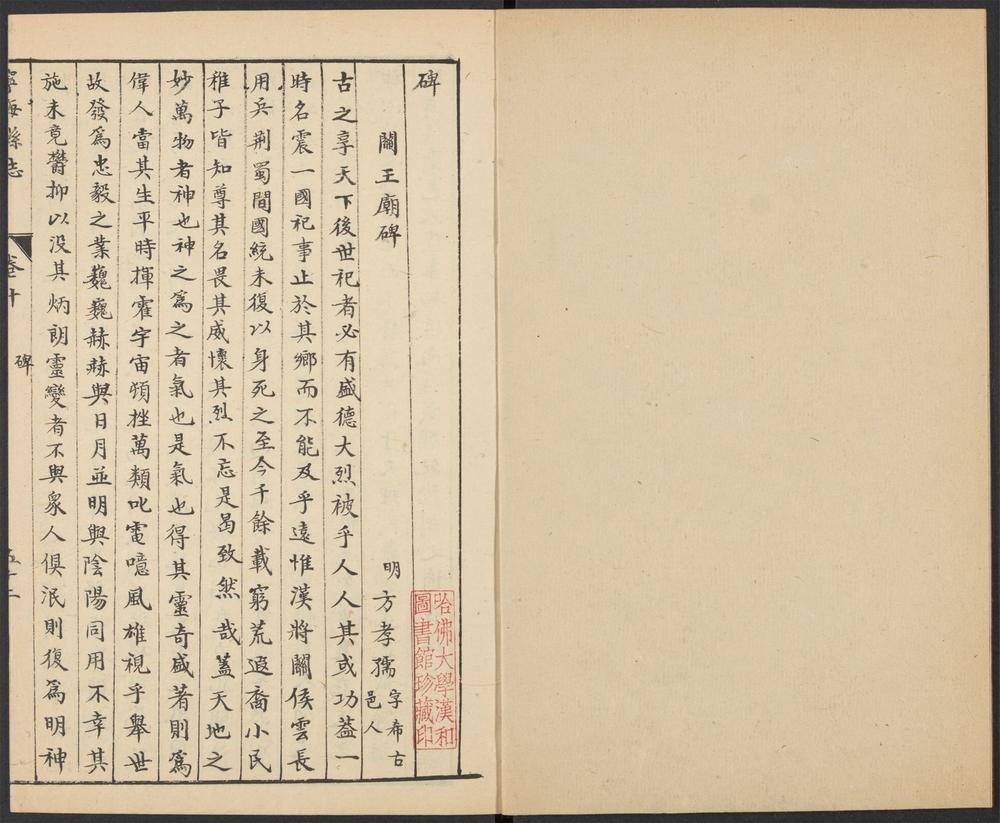 碑
關王廟碑
明方孝孺字希古邑人
古之享天下後世祀者必有盛德大烈被乎人人其或功益一
時名震一國祀事止於其鄉而不能及乎遠惟漢將關侯雲長
用兵荆蜀間國統未復以身死之至今千餘載窮荒遐裔小民
稚子皆知尊其名畏其威懷其烈不忘是曷致然哉蓋天地之
妙萬物者神也神之為之者氣也是氣也得其靈奇盛著則爲
偉人當其生平時揮霍宇宙頓挫萬類叱電噫風雄視乎舉世
故發爲忠毅之業巍巍赫赫與日月並明與陰陽同用不幸其
施未竟欝抑以没其炳朗靈變者不與衆人俱泯則復爲明神
寧海縣志
卷十
碑
哈佛大學漢和
圖書館珍藏印